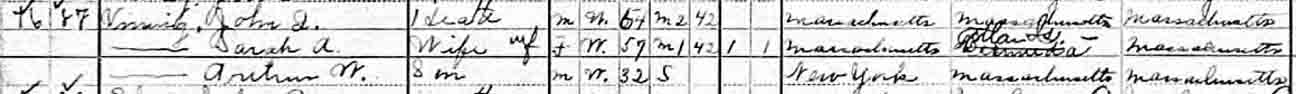 76 87 Vining, John Q. Head m W. 64 m2 42 Massachusetts Massachusetts Massachusetts
—— Sarah A. Wife F W. 59 m1 42 1 1 Massachusetts Massachusetts
—— Arthur W. Son m W. 32 S New York Massachusetts Massachusetts